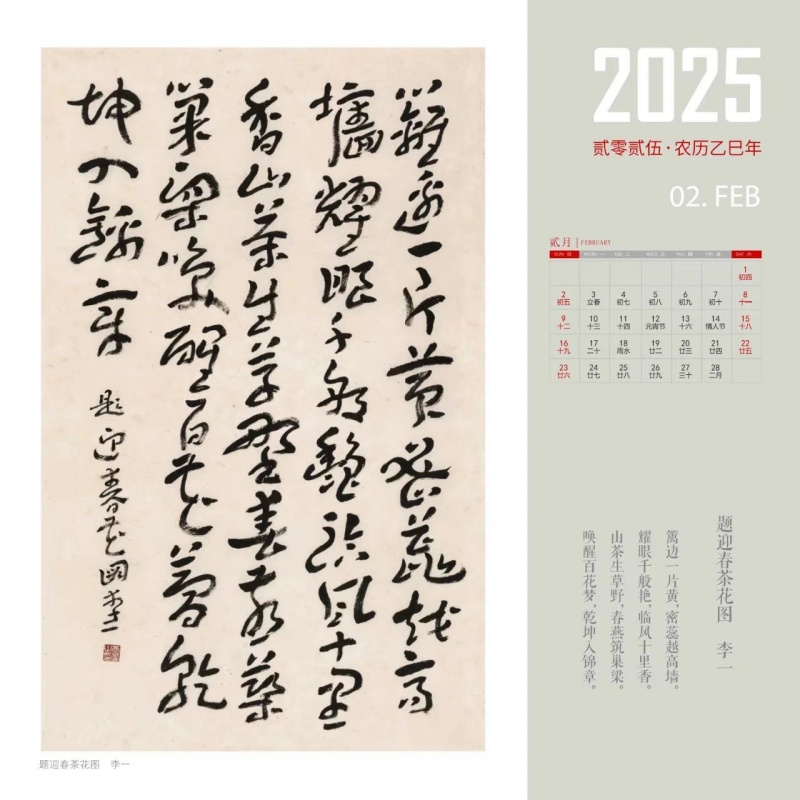 籬邊一片黄密蕊越高
墻耀眼千般艷临風十里
香山茶生草野春燕築
巢梁唤醒百花夢乾
坤入錦章
題迎春花圖李一
题迎春茶花图 李一
2025
贰零贰伍·农历乙巳年
02. FEB
贰月 FEBRUARY
SUN 日 MON 一 TUE 二 WED 三 THU 四 FRI 五 SAT 六
1
初四
2 3 4 5 6 7 8
初五 立春 初七 初八 初九 初十 十一
9 10 11 12 13 14 15
十二 十三 十四 元宵节 十六 情人节 十八
16 17 18 19 20 21 22
十九 二十 雨水 廿二 廿三 廿四 廿五
23 24 25 26 27 28
廿六 廿七 廿八 廿九 三十 二月
题迎春茶花图 李一
篱边一片黄,密蕊越高墙。
耀眼千般艳,临风十里香。
山茶生草野,春燕筑巢梁。
唤醒百花梦,乾坤入锦章。